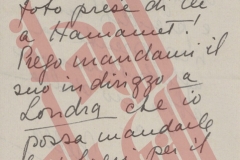 foto prese di lei
a Hamamet!
Prego mandarmi il
suo indirizzo a
Londra che io
possa mandarle
per il